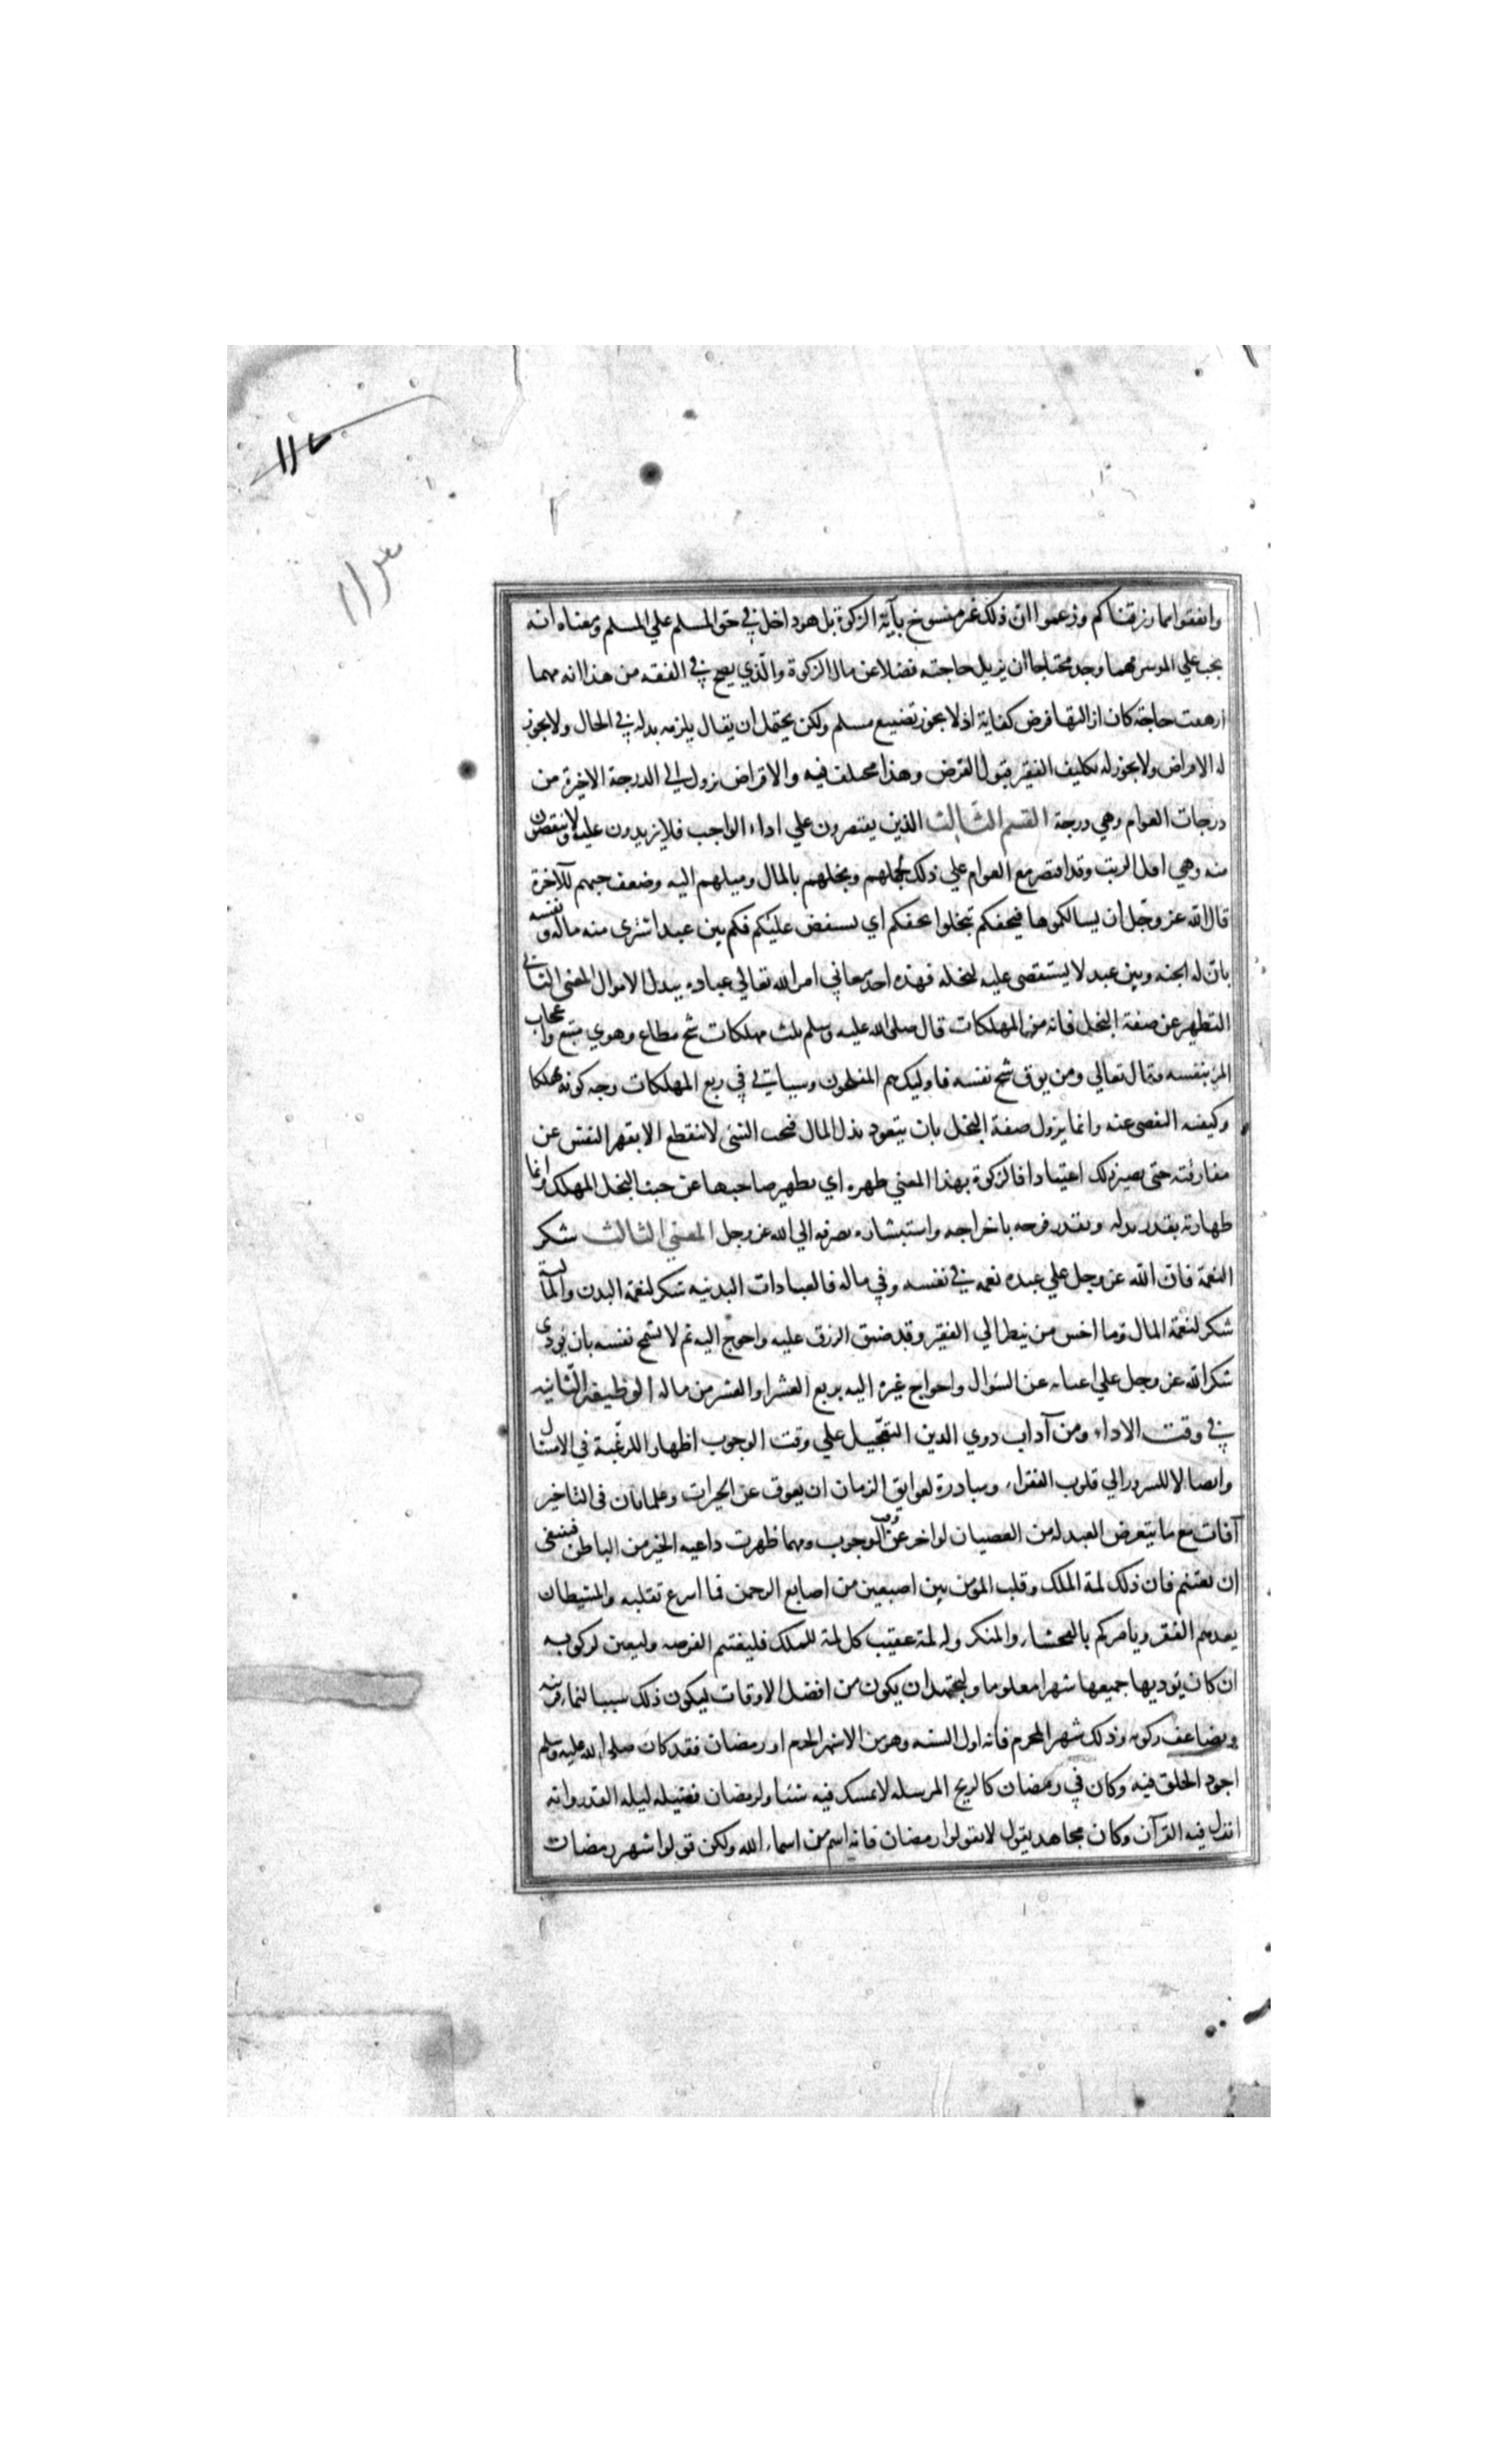 ١١٢
١١٣
وانفقوا مما رزقناكم وزعموا ان ذلك غير منسوخ بآية الزكوة بل هو داخل في حق المسلم علي المسلم ومعناه انه
يجب علي الموسر مهما وجد محتاجا ان يزيل حاجته فضلا عن مال الزكوة والذي يصح في الفقه من هذا انه مهما
ارهقت حاجة كان ازالتها فرض كفاية اذ لا يجوز تضييع مسلم ولكن يحتمل ان يقال يلزمه بدله في الحال ولا يجوز
له الاقراض ولا يجوز له تكليف الفقير قبول القرض وهذا مختلف فيه والاقراض نزول الي الدرجة الاخيرة من
درجات العوام وهي درجة القسم الثالث الذين يقتصرون علي اداء الواجب فلا يزيدون عليه ولا ينقصون
منه وهي اقل الرتب وقد اقتصر مع العوام علي ذلك لجهلهم وبخلهم بالمال وميلهم اليه وضعف حبهم للآخرة
قال الله عز وجل ان يسالكموها فيحفكم تبخلوا يحفكم اي يستقض عليكم فكم بين عبد اشترى منه ماله ونفسه
بان له الجنه وبين عبد لا يستقصى عليه لبخله فهذه احد معاني امر الله تعالي عباده ببدل الاموال المعنى الثاني
التطهر عن صفة البخل فانه من المهلكات قال صلى الله عليه وسلم ثلث مهلكات شح مطاع وهوي متبع واعجاب
المرء بنفسه وقال تعالي ومن يوق شح نفسه فاوليك هم المفلحون وسياتي في ربع المهلكات وجه كونه مهلكا
وكيفيه التفصى عنه وانما يزول صفة البخل بان يتعود بذل المال فحب الشئ لا ينقطع الا بقهر النفس عن
مفارقته حتى يصير ذلك اعتيادا فالزكوة بهذا المعني طهره اي تطهير صاحبها عن خبث البخل المهلك وانما
طهارته بقدر بدله وبقدر فرحه باخراجه واستبشاره بصرفه الي الله عز وجل المعني الثالث شكر
النعمة فان الله عز وجل علي عبده نعمه في نفسه وفي ماله فالعبادات البدنيه شكر لنعمة البدن والماليه
شكر لنعمة المال وما اخس من ينظر الي الفقير وقد ضيق الرزق عليه واحوج اليه ثم لا تسمح نفسه بان يودي
شكر الله عز وجل علي اغنايه عن السوال واحواج غيره اليه بربع العشر او العشر من ماله الوظيفه الثانيه
في وقت الاداء ومن آداب ذوي الدين التعجيل علي وقت الوجوب اظهارا للرغبة في الامتثال
وايصالا للسرور الي قلوب الفقراء ومبادرة لعوايق الزمان ان يعوق عن الخيرات وعلما بان في التاخير
آفات مع ما يتعرض العبد له من العصيان لو اخر عن وقت الوجوب ومهما ظهرت داعيه الخير من الباطن فينبغي
ان يغتنم فان ذلك لمة الملك وقلب المومن بين اصبعين من اصابع الرحمن فما اسرع تقلبه والشيطان
يعدكم الفقر ويامركم بالفحشاء والمنكر وله لمة عقيب كل لمة للملك فليغتنم الفرصه وليعين لزكوته
ان كان يوديها جميعها شهرا معلوما وليجتهد ان يكون من افضل الاوقات ليكون ذلك سببا لنماء قربته
ويضاعف زكوته وذلك شهر المحرم فانه اول السنه وهو من الاشهر الحرم او رمضان فقد كان صلى الله عليه وسلم
اجود الخلق فيه وكان في رمضان كالريح المرسله لا يمسك فيه شئيا ولرمضان فضيله ليله القدر وانه
انزل فيه القرآن وكان مجاهد يقول لا تقولوا رمضان فانه اسم من اسماء الله ولكن قولوا شهر رمضان